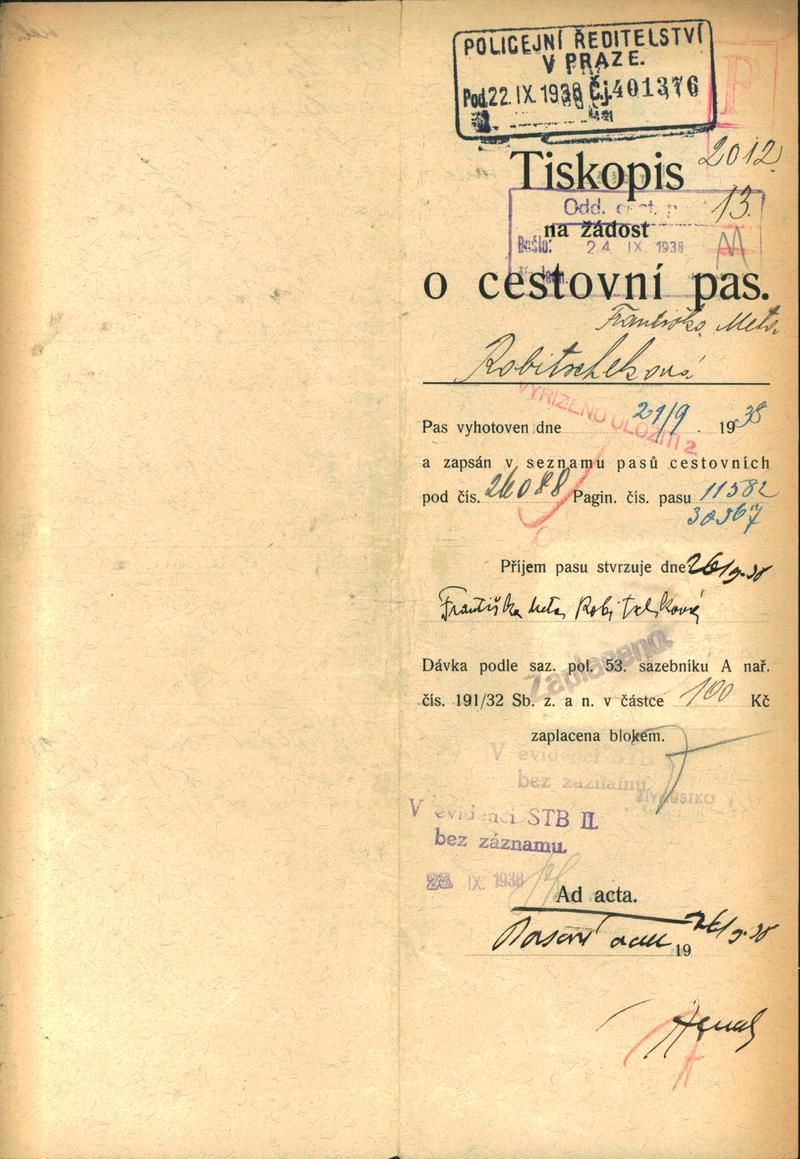 POLICEJNÍ ŘEDITELSTVÍ
V PRAZE.
Pod. 22. IX. 1938 Čj. 401376
Tiskopis
2012
13.
Odd. cest. p
na žádost
Došlo: 24 IX 1938
M
o cestovní pas.
Františka Meta
Robitscheková
VYŘÍZENO ULOŽITI 2
Pas vyhotoven dne 21/9. 1938
a zapsán v seznamu pasů cestovních
pod čís. 26088 Pagin. čís. pasu 11582
30367
Příjem pasu stvrzuje dne 26/9.38
Františka Meta Robitscheková
Zaplaceno.
Dávka podle saz. pol. 53. sazebníku A nař.
čís. 191/32 Sb. z. a n. v částce 100 Kč
zaplacena blokem.
V evidenci STB
bez záznamu
V evidenci STB II.
bez záznamu.
23 IX. 1938
Ad acta.
26/9.38
19